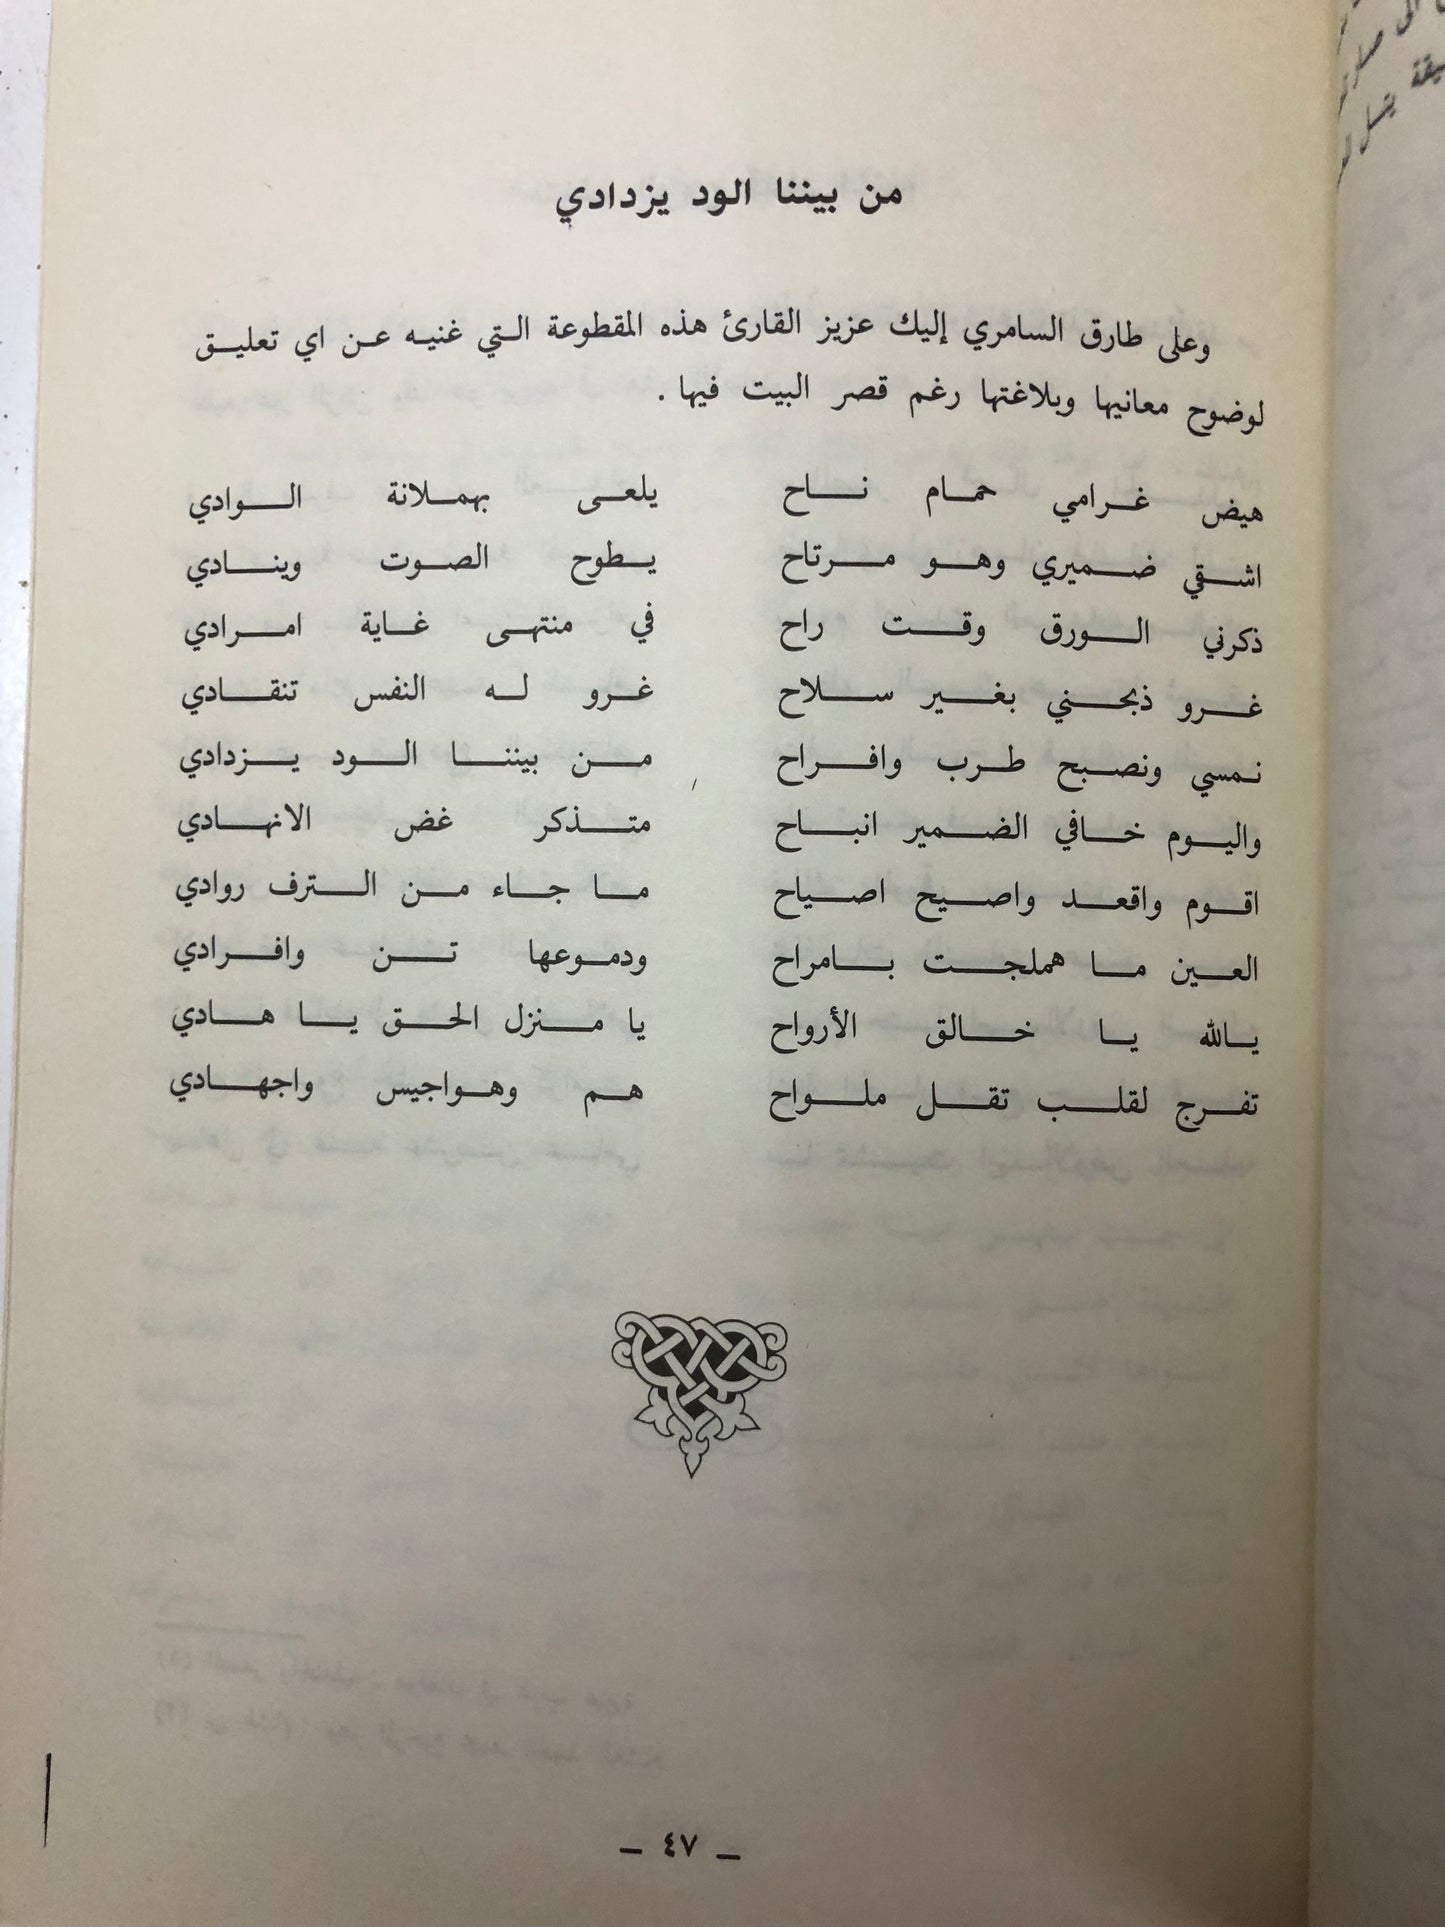 من بيننا الود يزدادي
وعلى طارق السامري إليك عزيز القارئ هذه المقطوعة التي غنيه عن اي تعليق
لوضوح معانيها وبلاغتها رغم قصر البيت فيها .
هيض غرامي حمام ناح يلعى بهملانة الوادي
اشقي ضميري وهو مرتاح يطوح الصوت وينادي
ذكرني الورق وقت راح في منتهى غاية امرادي
غرو ذبحني بغير سلاح غرو له النفس تنقادي
نمسي ونصبح طرب وافراح من بيننا الود يزدادي
واليوم خافي الضمير انباح متذكر غض الانهادي
اقوم واقعد واصيح اصياح ما جاء من الترف روادي
العين ما هملجت بامراح ودموعها تن وافرادي
يالله يا خالق الأرواح يا منزل الحق يا هادي
تفرج لقلب تقل ملواح هم وهواجيس واجهادي
_ ٤٧ _